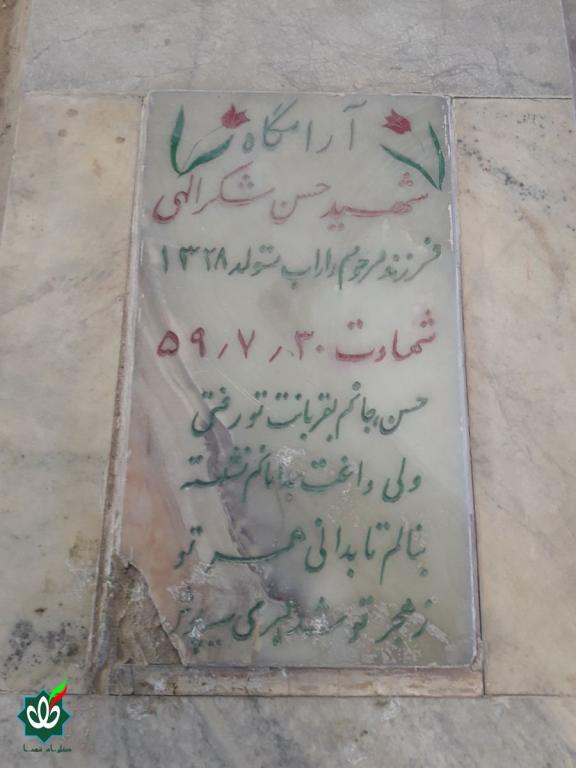 آرامگاه
شهید حسن شکرالهی
فرزند مرحوم داراب متولد ۱۳۲۸
شهادت ۵۹/۷/۳۰
حسن جانم بقربانت تو رفتی
ولی داغت بدامانم نشسته
بنالم تا بدانی همسر تو
ز هجر تو شبیه قمری سیه پوش